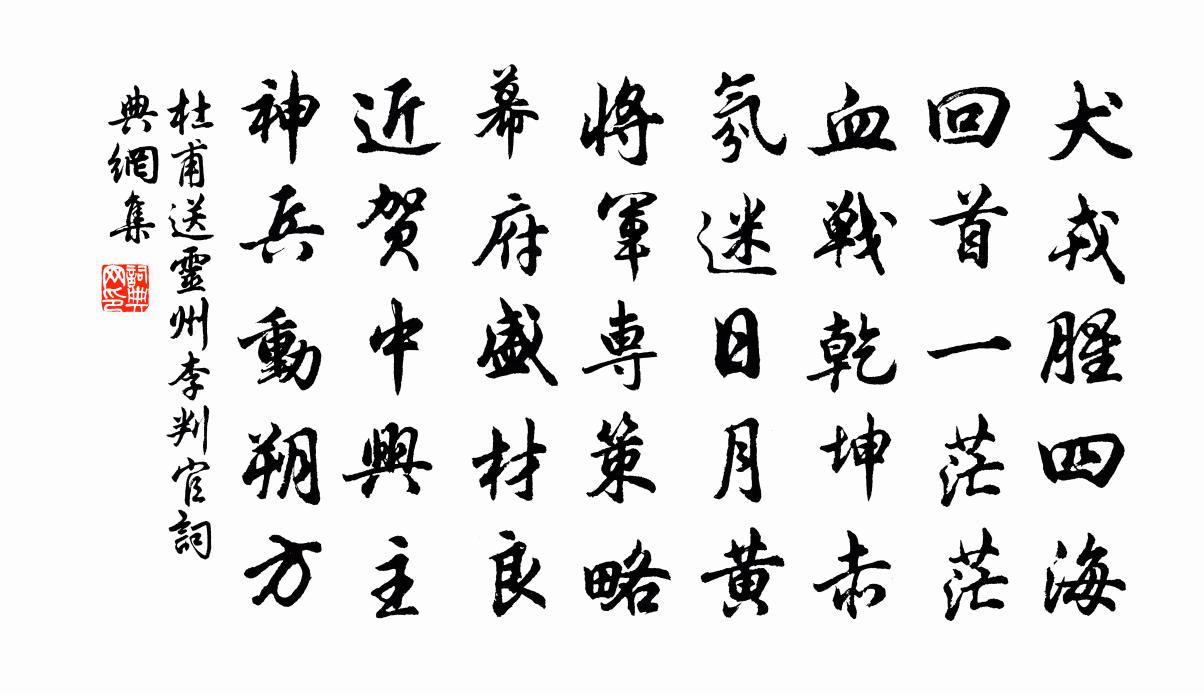 犬戎腥四海
回首一茫茫
血戦乾坤赤
氛迷日月黄
將軍専策略
幕府盛材良
近贺中興主
神兵動朔方
杜甫送靈州李判官詞
典網集
詞典网印